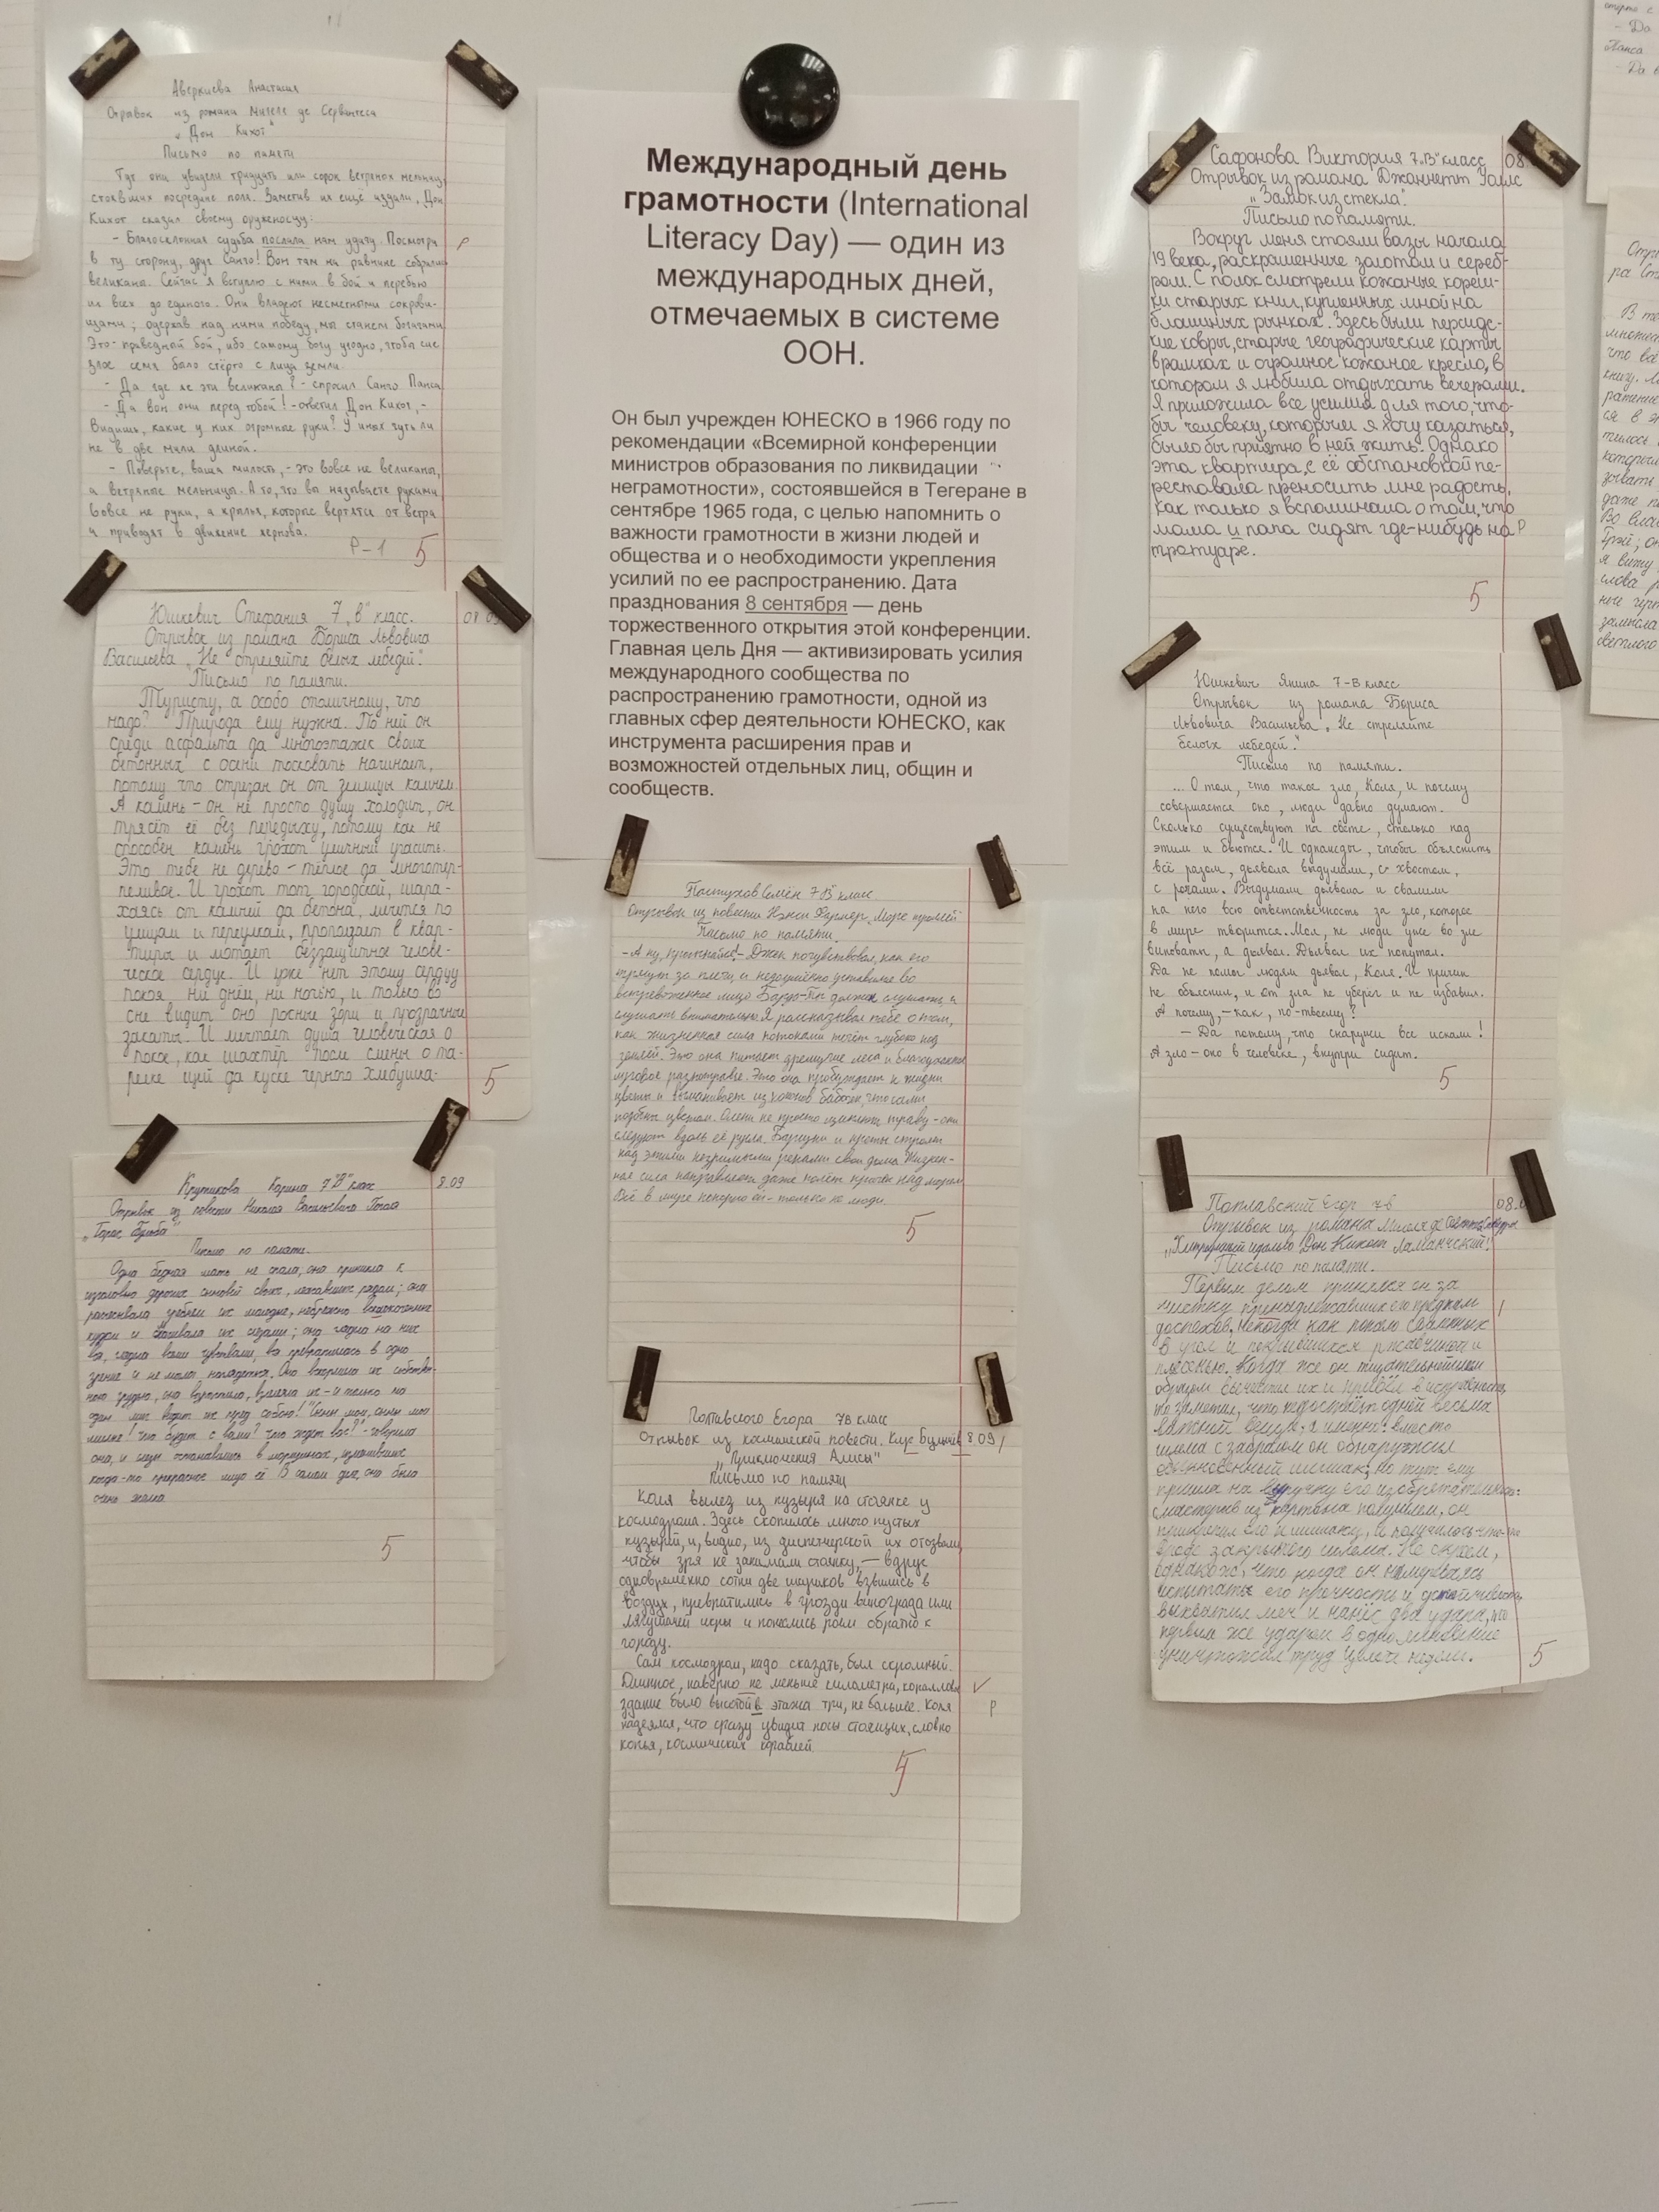 Аверкиева Анастасия
Отрывок из романа Мигеля де Сервантеса
"Дон Кихот"
Письмо по памяти
Тут они увидели тридцать или сорок ветряных мельниц,
стоявших посредине поля. Заметив их ещё издали, Дон
Кихот сказал своему оруженосцу:
- Благосклонная судьба послала нам удачу. Посмотри
в ту сторону, друг Санчо! Вон там на равнине собрались
великаны. Сейчас я вступлю с ними в бой и перебью
их всех до единого. Они владеют несметными сокрови-
щами; одержав над ними победу, мы станем богачами.
Это - праведный бой, ибо самому богу угодно, чтобы сие
злое семя было стёрто с лица земли.
- Да где же эти великаны? - спросил Санчо Панса
- Да вон они перед тобой! - ответил Дон Кихот, -
Видишь, какие у них огромные руки? У иных чуть ли
не в две мили длиной.
- Поверьте, ваша милость, - это вовсе не великаны,
а ветряные мельницы. А то, что вы называете руками
вовсе не руки, а крылья, которые вертятся от ветра
и приводят в движение жернова.
Р-1 5
Юшкевич Стефания 7 "в" класс. 08 09
Отрывок из романа Бориса Львовича
Васильева "Не стреляйте белых лебедей".
Письмо по памяти.
Туристу, а особо столичному, что
надо? Природа ему нужна. По ней он
среди асфальта да многоэтажек своих
бетонных с осени тосковать начинает,
потому что отрезан он от землицы камнем.
А камень - он не просто душу холодит, он
трясёт её без передыху, потому как не
способен камень грохот уличный угасить.
Это тебе не дерево - тёплое да многотер-
пеливое. И грохот тот городской, шара-
хаясь от камней да бетона, мечется по
улицам и переулкам, проползает в квар-
тиры и мотает беззащитное челове-
ческое сердце. И уже нет этому сердцу
покоя ни днём, ни ночью, и только во
сне видит оно росные зори и прозрачные
закаты. И мечтает душа человеческая о
покое, как шахтёр после смены о та-
релке щей да куске чёрного хлебушка.
5
Крупикова Карина 7 "В" класс 8.09
Отрывок из повести Николая Васильевича Гоголя
"Тарас Бульба"
Письмо по памяти.
Одна бедная мать не спала, она приникла к
изголовью дорогих сыновей своих, лежавших рядом; она
расчёсывала гребнем их молодые, небрежно
кудри и смачивала их слезами; она глядела на них
вся, глядела всеми чувствами, вся превратилась в одно
зрение и не могла наглядеться. Она вскормила их собствен-
ною грудью, она взрастила, взлелеяла их - и только на
один миг видит их пред собою! "Сыны мои, сыны мои
милые! Что будет с вами? Что ждёт вас?" - говорила
она, и слёзы остановились в морщинах, изменивших
когда-то прекрасное лицо её. В самом деле, она была
очень жалка.
5
Международный день
грамотности (International
Literacy Day) — один из
международных дней,
отмечаемых в системе
ООН.
Он был учрежден ЮНЕСКО в 1966 году по
рекомендации «Всемирной конференции
министров образования по ликвидации
неграмотности», состоявшейся в Тегеране в
сентябре 1965 года, с целью напомнить о
важности грамотности в жизни людей и
общества и о необходимости укрепления
усилий по ее распространению. Дата
празднования 8 сентября — день
торжественного открытия этой конференции.
Главная цель Дня — активизировать усилия
международного сообщества по
распространению грамотности, одной из
главных сфер деятельности ЮНЕСКО, как
инструмента расширения прав и
возможностей отдельных лиц, общин и
сообществ.
Пастухов Семён 7 "В" класс
Отрывок из повести Нэнси Фармер "Море троллей"
Письмо по памяти.
- А ну, просыпайся! - Джек почувствовал, как его
тряхнули за плечи, и недоумённо уставился во
встревоженное лицо Барда. - Ты должен слушать и
слушать внимательно. Я рассказывал тебе о том,
как жизненная сила потоками течёт глубоко под
землёй. Это она питает дремучие леса и благоуханное
луговое разнотравье. Это она пробуждает к жизни
цветы и выманивает из коконов бабочек, что сами
подобны цветам. Олени не просто щиплют траву - они
следуют вдоль её русла. Барсуки и кроты строят
над этими незримыми реками свои дома. Жизнен-
ная сила направляет даже полёт птиц над морем
Всё в мире покорно ей - только не люди.
5
Полтавского Егора 7В класс
Отрывок из космической повести. Кир Булычёв 8.09
"Приключения Алисы"
Письмо по памяти
Коля вылез из пузыря на стоянке у
космодрома. Здесь скопилось много пустых
пузырей, и, видно, из диспетчерской их отозвали,
чтобы зря не занимали стоянку, — вдруг
одновременно сотни две шариков взвились в
воздух, превратились в грозди винограда или
лягушачей икры и понеслись роем обратно к
городу.
Сам космодром, надо сказать, был скромный.
Длинное, наверно не меньше километра, коралловое
здание было высотой в этажа три, не больше. Коля
надеялся, что сразу увидит носы стоящих, словно
копья, космических кораблей.
Сафонова Виктория 7 "В" класс 08
Отрывок из романа Джаннетт Уоллс
"Замок из стекла".
Письмо по памяти.
Вокруг меня стояли вазы начала
19 века, раскрашенные золотом и сереб-
ром. С полок смотрели кожаные кореш-
ки старых книг, купленных мной на
блошиных рынках. Здесь были персидс-
кие ковры, старые географические карты
в рамках и огромное кожаное кресло, в
котором я любила отдыхать вечерами.
Я приложила все усилия для того, что-
бы человеку, которым я хочу казаться,
было бы приятно в ней жить. Однако
эта квартира, с её обстановкой пе-
реставала приносить мне радость,
как только я вспоминала о том, что
мама и папа сидят где-нибудь на
тротуаре.
5
Юшкевич Янина 7-В класс
Отрывок из романа Бориса
Львовича Васильева "Не стреляйте
белых лебедей."
Письмо по памяти.
... О том, что такое зло, Коля, и почему
совершается оно, люди давно думают.
Сколько существуют на свете, столько над
этим и бьются. И однажды, чтобы объяснить
всё разом, дьявола выдумали, с хвостом,
с рогами. Выдумали дьявола и свалили
на него всю ответственность за зло, которое
в мире творится. Мол, не люди уже во зле
виноваты, а дьявол. Дьявол их попутал.
Да не помог людям дьявол, Коля. И причин
не объяснил, и от зла не уберёг и не избавил.
А почему, - как, по-твоему?
- Да потому, что снаружи все искали!
А зло - оно в человеке, внутри сидит.
5
Поплавский Егор 7в 08.
Отрывок из романа Мигель де Сервантес
"Хитроумный идальго Дон Кихот Ламанчский".
Письмо по памяти.
Первым делом принялся он за
чистку принадлежавших его предкам
доспехов, некогда как попало сваленных
в угол и покрывшихся ржавчиной и
плесенью. Когда же он тщательнейшим
образом вычистил их и привёл в исправность,
то заметил, что недостаёт одной весьма
важной вещи, а именно: вместо
шлема с забралом он обнаружил
обыкновенный шишак; но тут ему
пришла на выручку его изобретательность:
смастерив из картона полушлем, он
прикрепил его к шишаку, и получилось что-то
вроде закрытого шлема. Не скроем,
однакож, что когда он намереваясь
испытать его прочность и устойчивость,
выхватил меч и нанёс два удара, то
первым же ударом в одно мгновение
уничтожил труд целой недели.
5